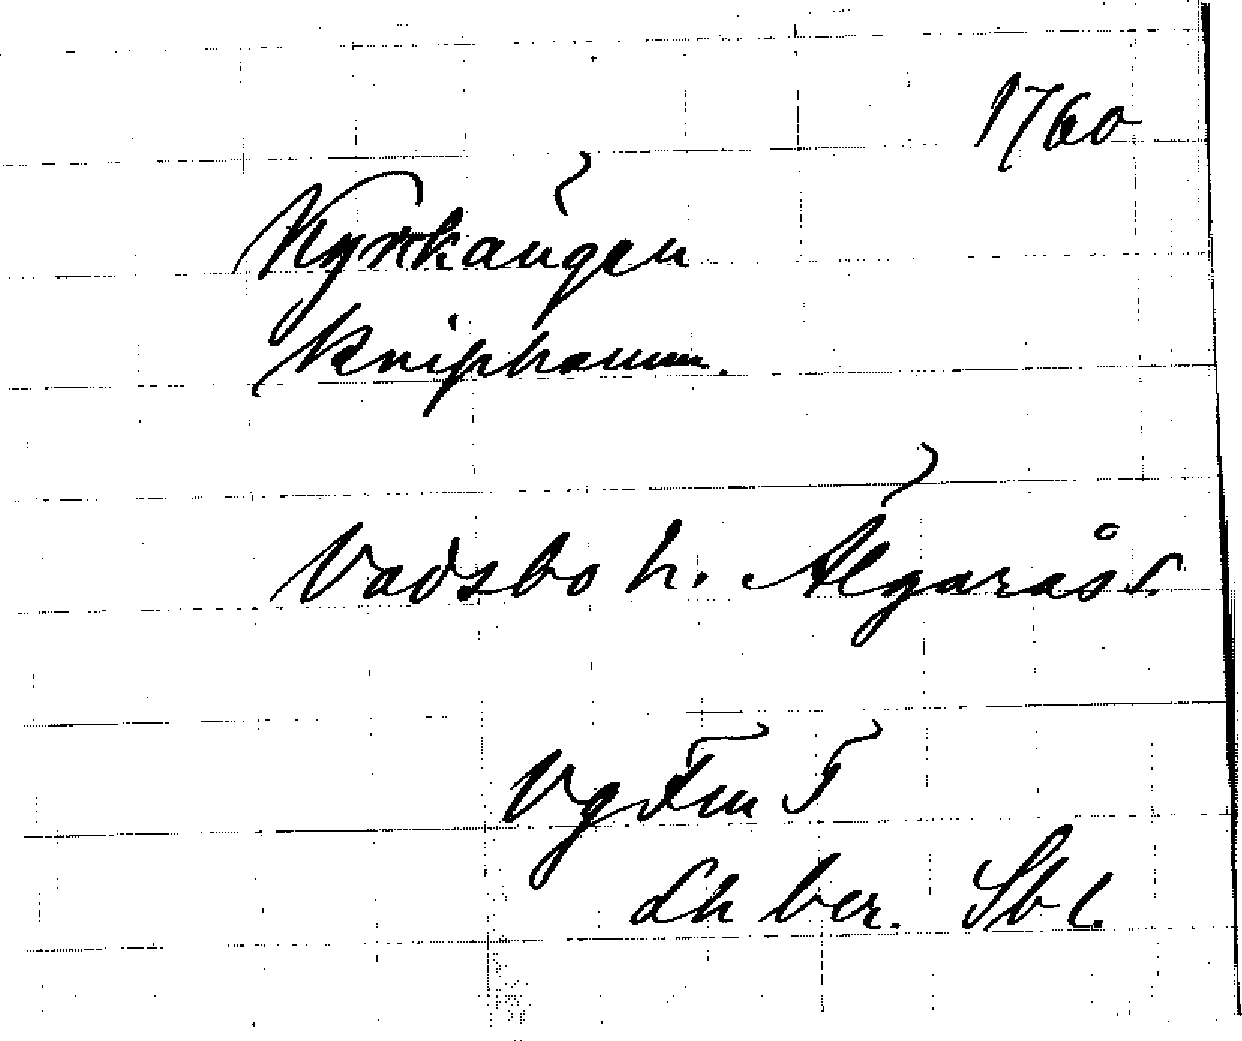 1760
Kyrkängen
Kniphamn.
Vadsbo h. Älgarås s.
Vg Fm T
Lh ber. Sbl.